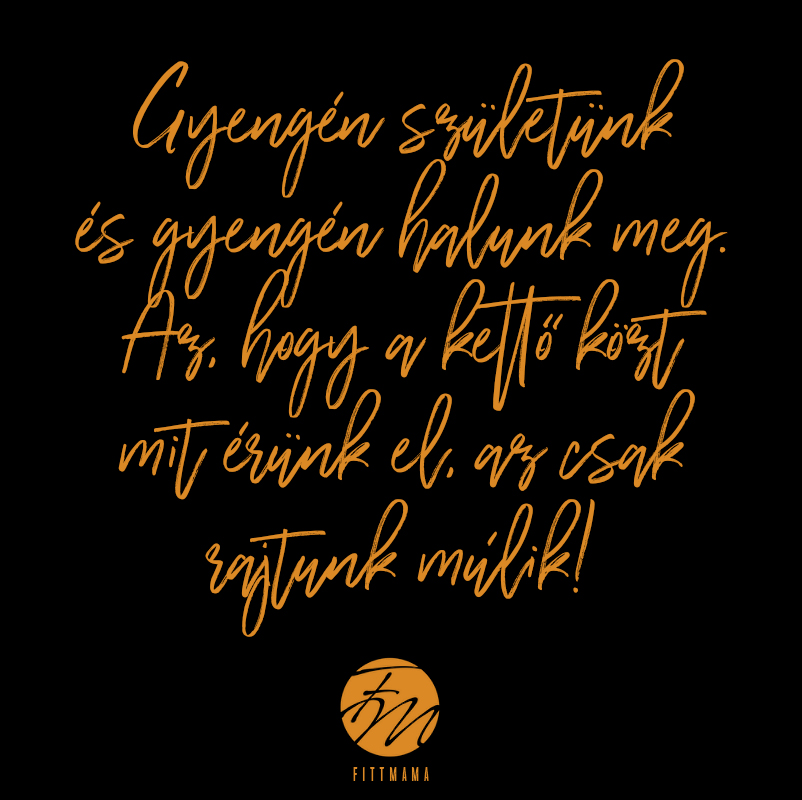 Gyengén születünk
és gyengén halunk meg.
Az, hogy a kettő közt
mit érünk el, az csak
rajtunk múlik!
FM
FITTMAMA